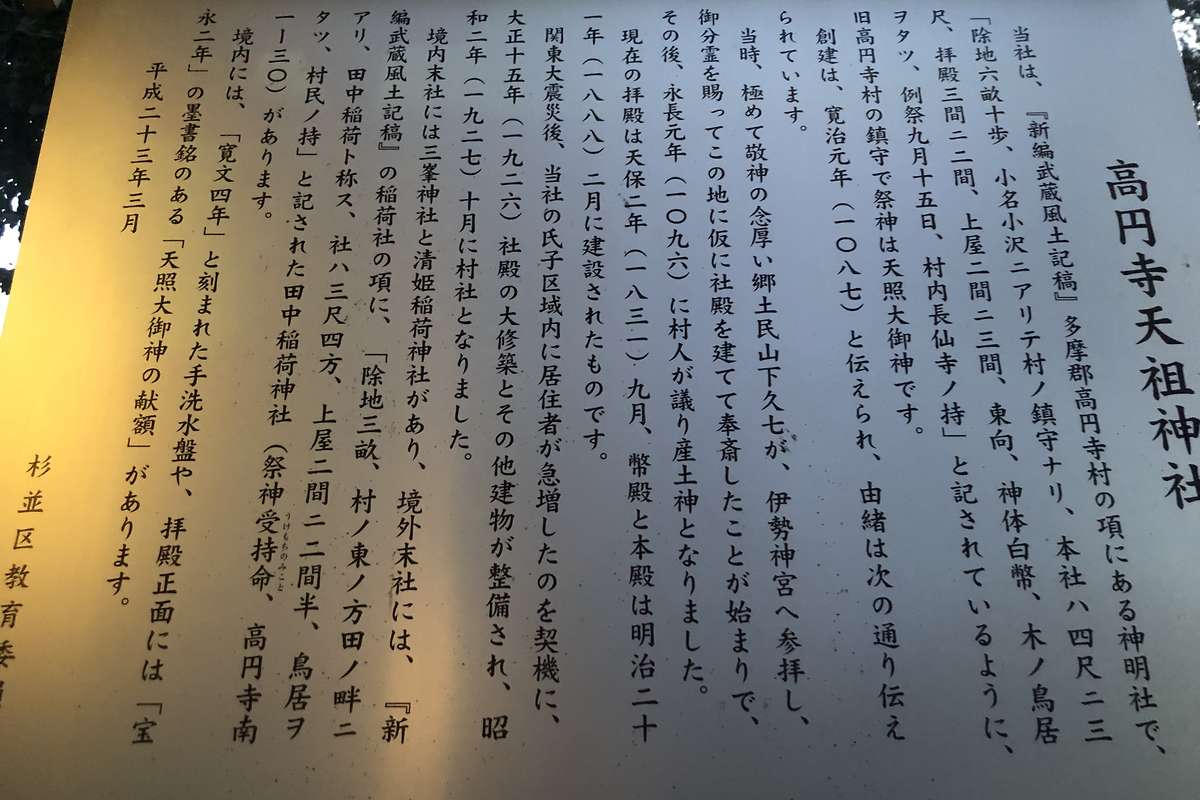 高円寺天祖神社
当社は、『新編武蔵風土記稿』多摩郡高円寺村の項にある神明社で、
「除地六畝十歩、小名小沢ニアリテ村ノ鎮守ナリ、本社ハ四尺ニ三
尺、拝殿三間ニ二間、上屋二間ニ三間、東向、神体白幣、木ノ鳥居
ヲタツ、例祭九月十五日、村内長仙寺ノ持」と記されているように、
旧高円寺村の鎮守で祭神は天照大御神です。
創建は、寛治元年（一〇八七）と伝えられ、由緒は次の通り伝え
られています。
当時、極めて敬神の念厚い郷土民山下久七が、伊勢神宮へ参拝し、
御分霊を賜ってこの地に仮に社殿を建てて奉斎したことが始まりで、
その後、永長元年（一〇九六）に村人が議り産土神となりました。
現在の拝殿は天保二年（一八三一）九月、幣殿と本殿は明治二十
一年（一八八八）二月に建設されたものです。
関東大震災後、当社の氏子区域内に居住者が急増したのを契機に、
大正十五年（一九二六）社殿の大修築とその他建物が整備され、昭
和二年（一九二七）十月に村社となりました。
境内末社には三峯神社と清姫稲荷神社があり、境外末社には、『新
編武蔵風土記稿』の稲荷社の項に、「除地三畝、村ノ東ノ方田ノ畔ニ
アリ、田中稲荷ト称ス、社ハ三尺四方、上屋二間ニ二間半、鳥居ヲ
タツ、村民ノ持」と記された田中稲荷神社（祭神受持命、高円寺南
うけもちのみこと
一ー三〇）があります。
境内には、「寛文四年」と刻まれた手洗水盤や、拝殿正面には「宝
永二年」の墨書銘のある「天照大御神の献額」があります。
平成二十三年三月
杉並区教育委員